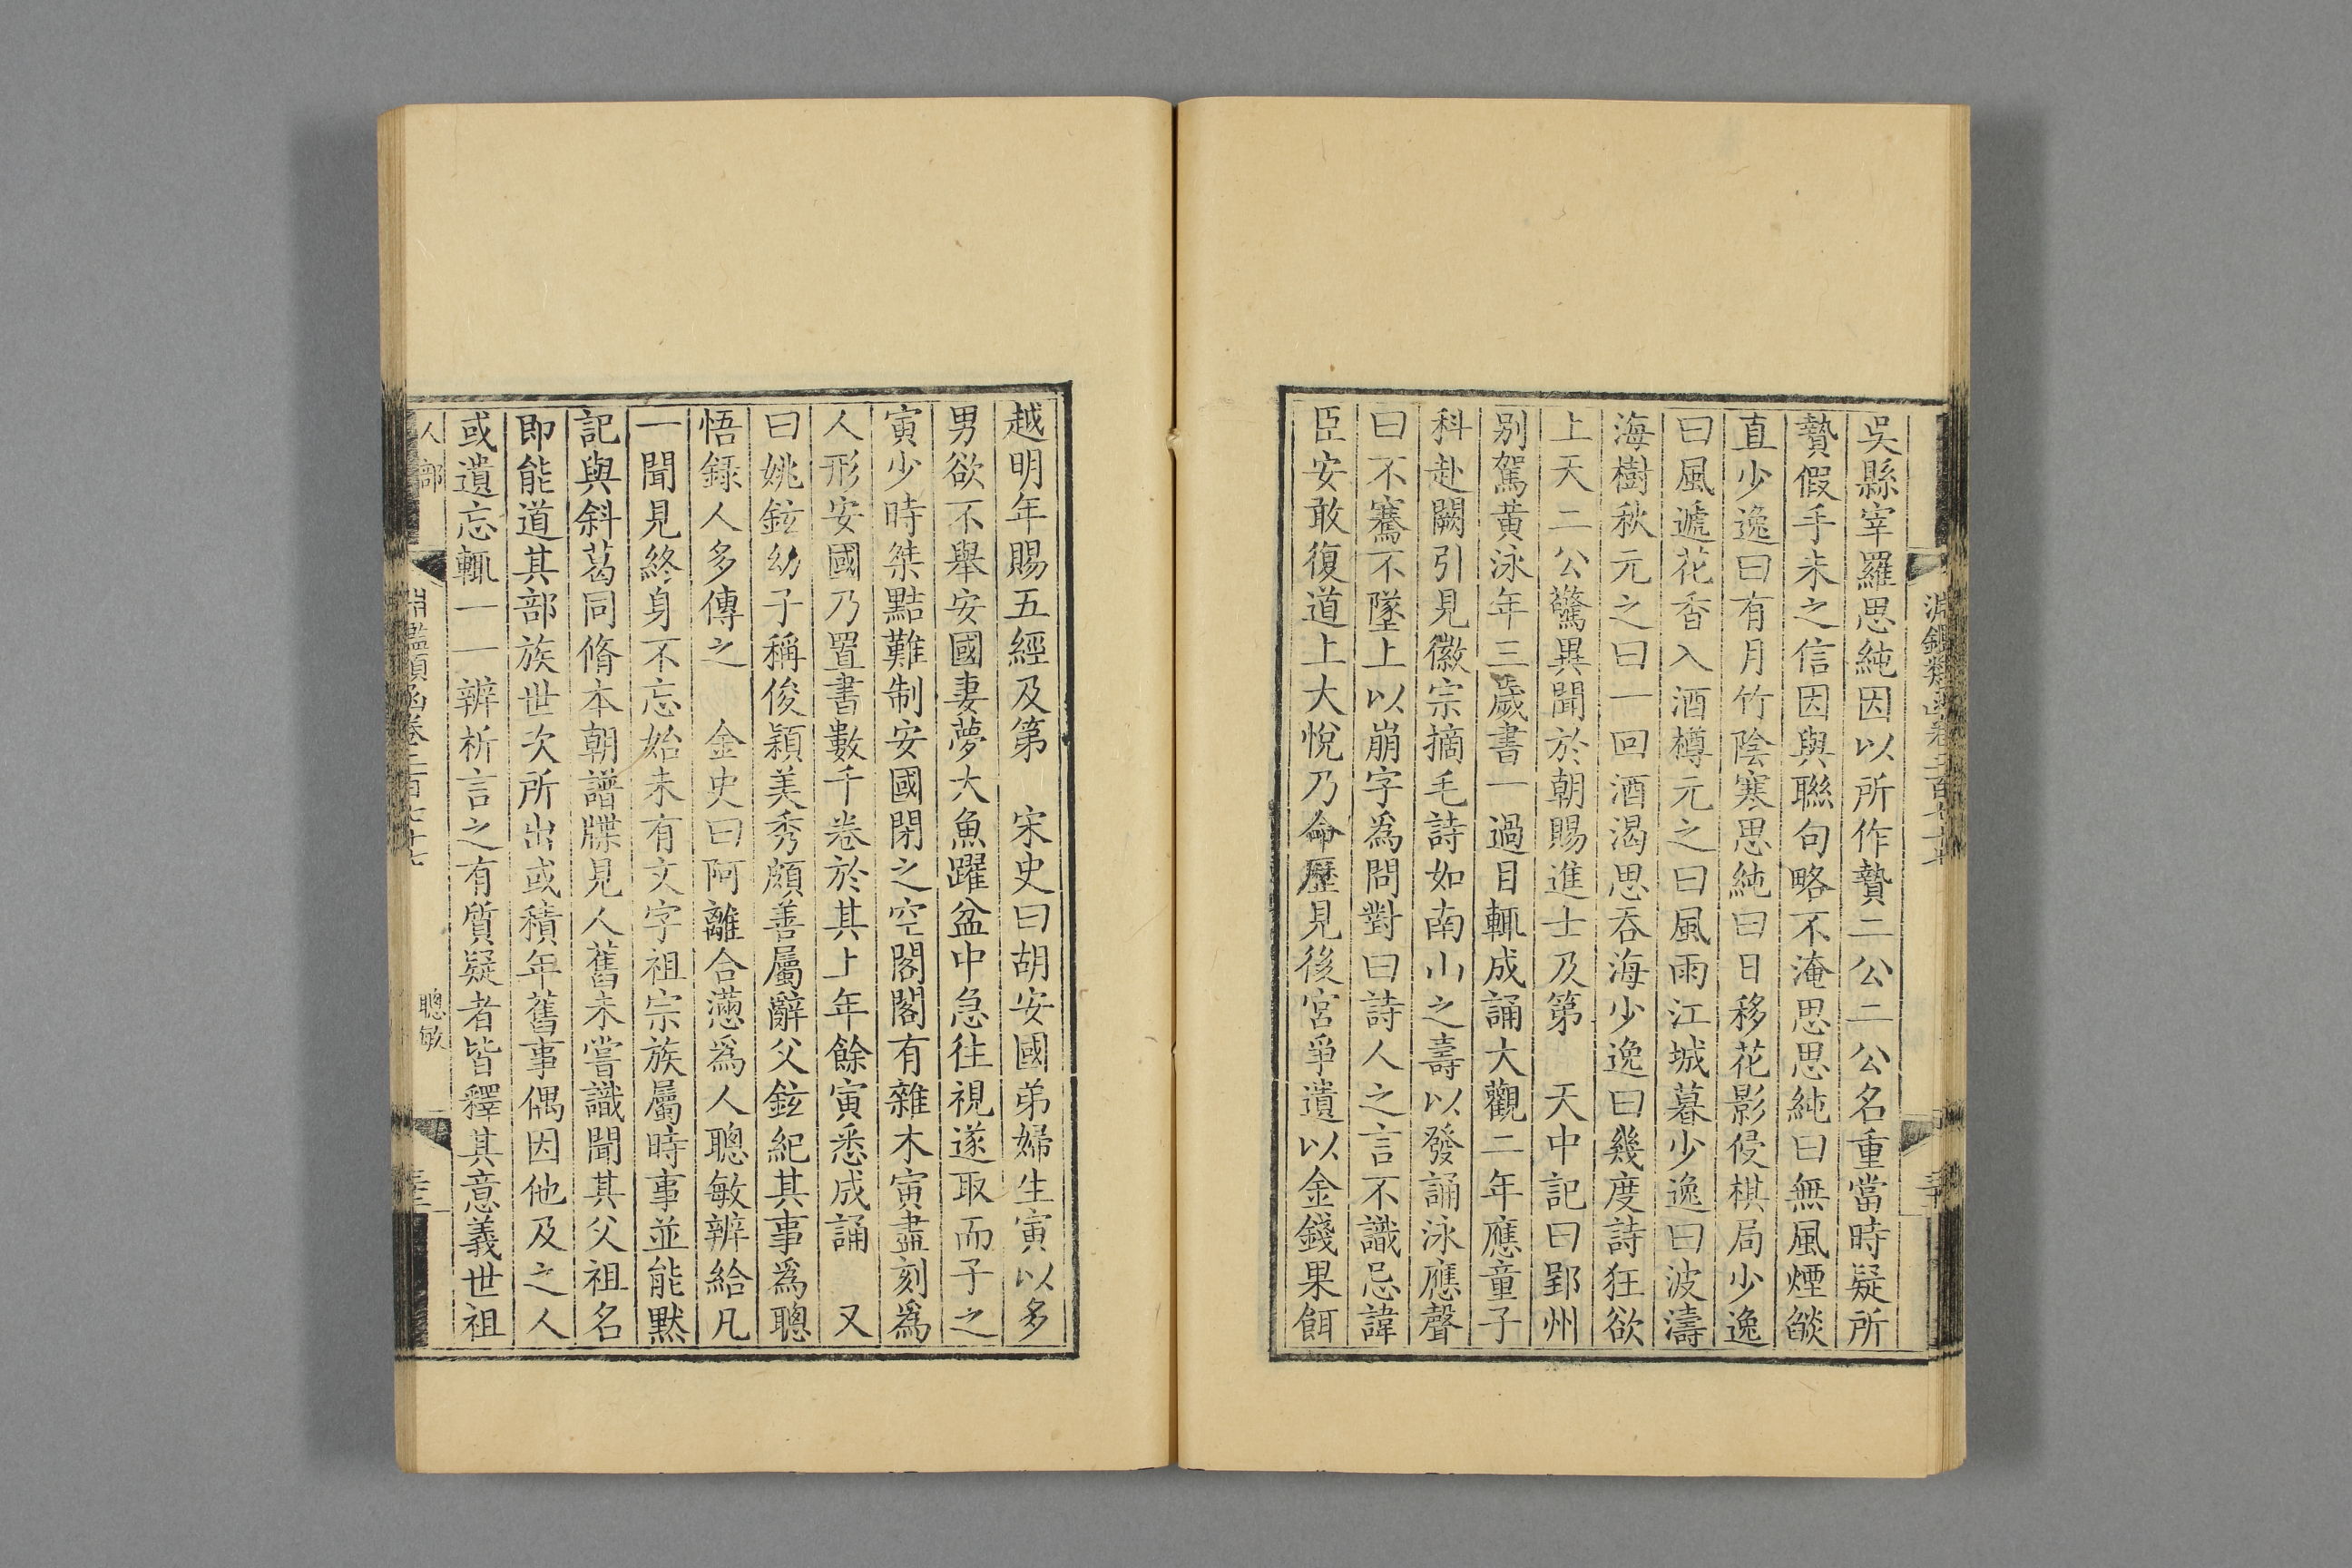 吳縣宰羅思純因以所作贄二公二公名重當時疑所
贄假手未之信因與聯句略不淹思思純曰無風煙燄
直少逸曰有月竹陰寒思純曰日移花影侵棋局少逸
曰風遞花香入酒樽元之曰風雨江城暮少逸曰波濤
海樹秋元之曰一回酒渴思吞海少逸曰幾度詩狂欲
上天二公驚異聞於朝賜進士及第　天中記曰郢州
别駕黃泳年三歲書一過目輒成誦大觀二年應童子
科赴闕引見徽宗摘毛詩如南山之壽以發誦泳應聲
曰不騫不墜上以崩字為問對曰詩人之言不識忌諱
臣安敢復道上大悅乃命歷見後宮爭遺以金錢果餌
越明年賜五經及第　宋史曰胡安國弟婦生寅以多
男欲不舉安國妻夢大魚躍盆中急往視遂取而子之
寅少時桀黠難制安國閉之空閣閣有雜木寅盡刻為
人形安國乃置書數千卷於其上年餘寅悉成誦　又
曰姚鉉幼子稱俊穎美秀頗善屬辭父鉉紀其事為聰
悟錄人多傳之　金史曰阿離合懣為人聰敏辨給凡
一聞見終身不忘始未有文字祖宗族屬時事並能默
記與斜葛同脩本朝譜牒見人舊未嘗識聞其父祖名
即能道其部族世次所出或積年舊事偶因他及之人
或遺忘輒一一辨析言之有質疑者皆釋其意義世祖
人部
聰敏